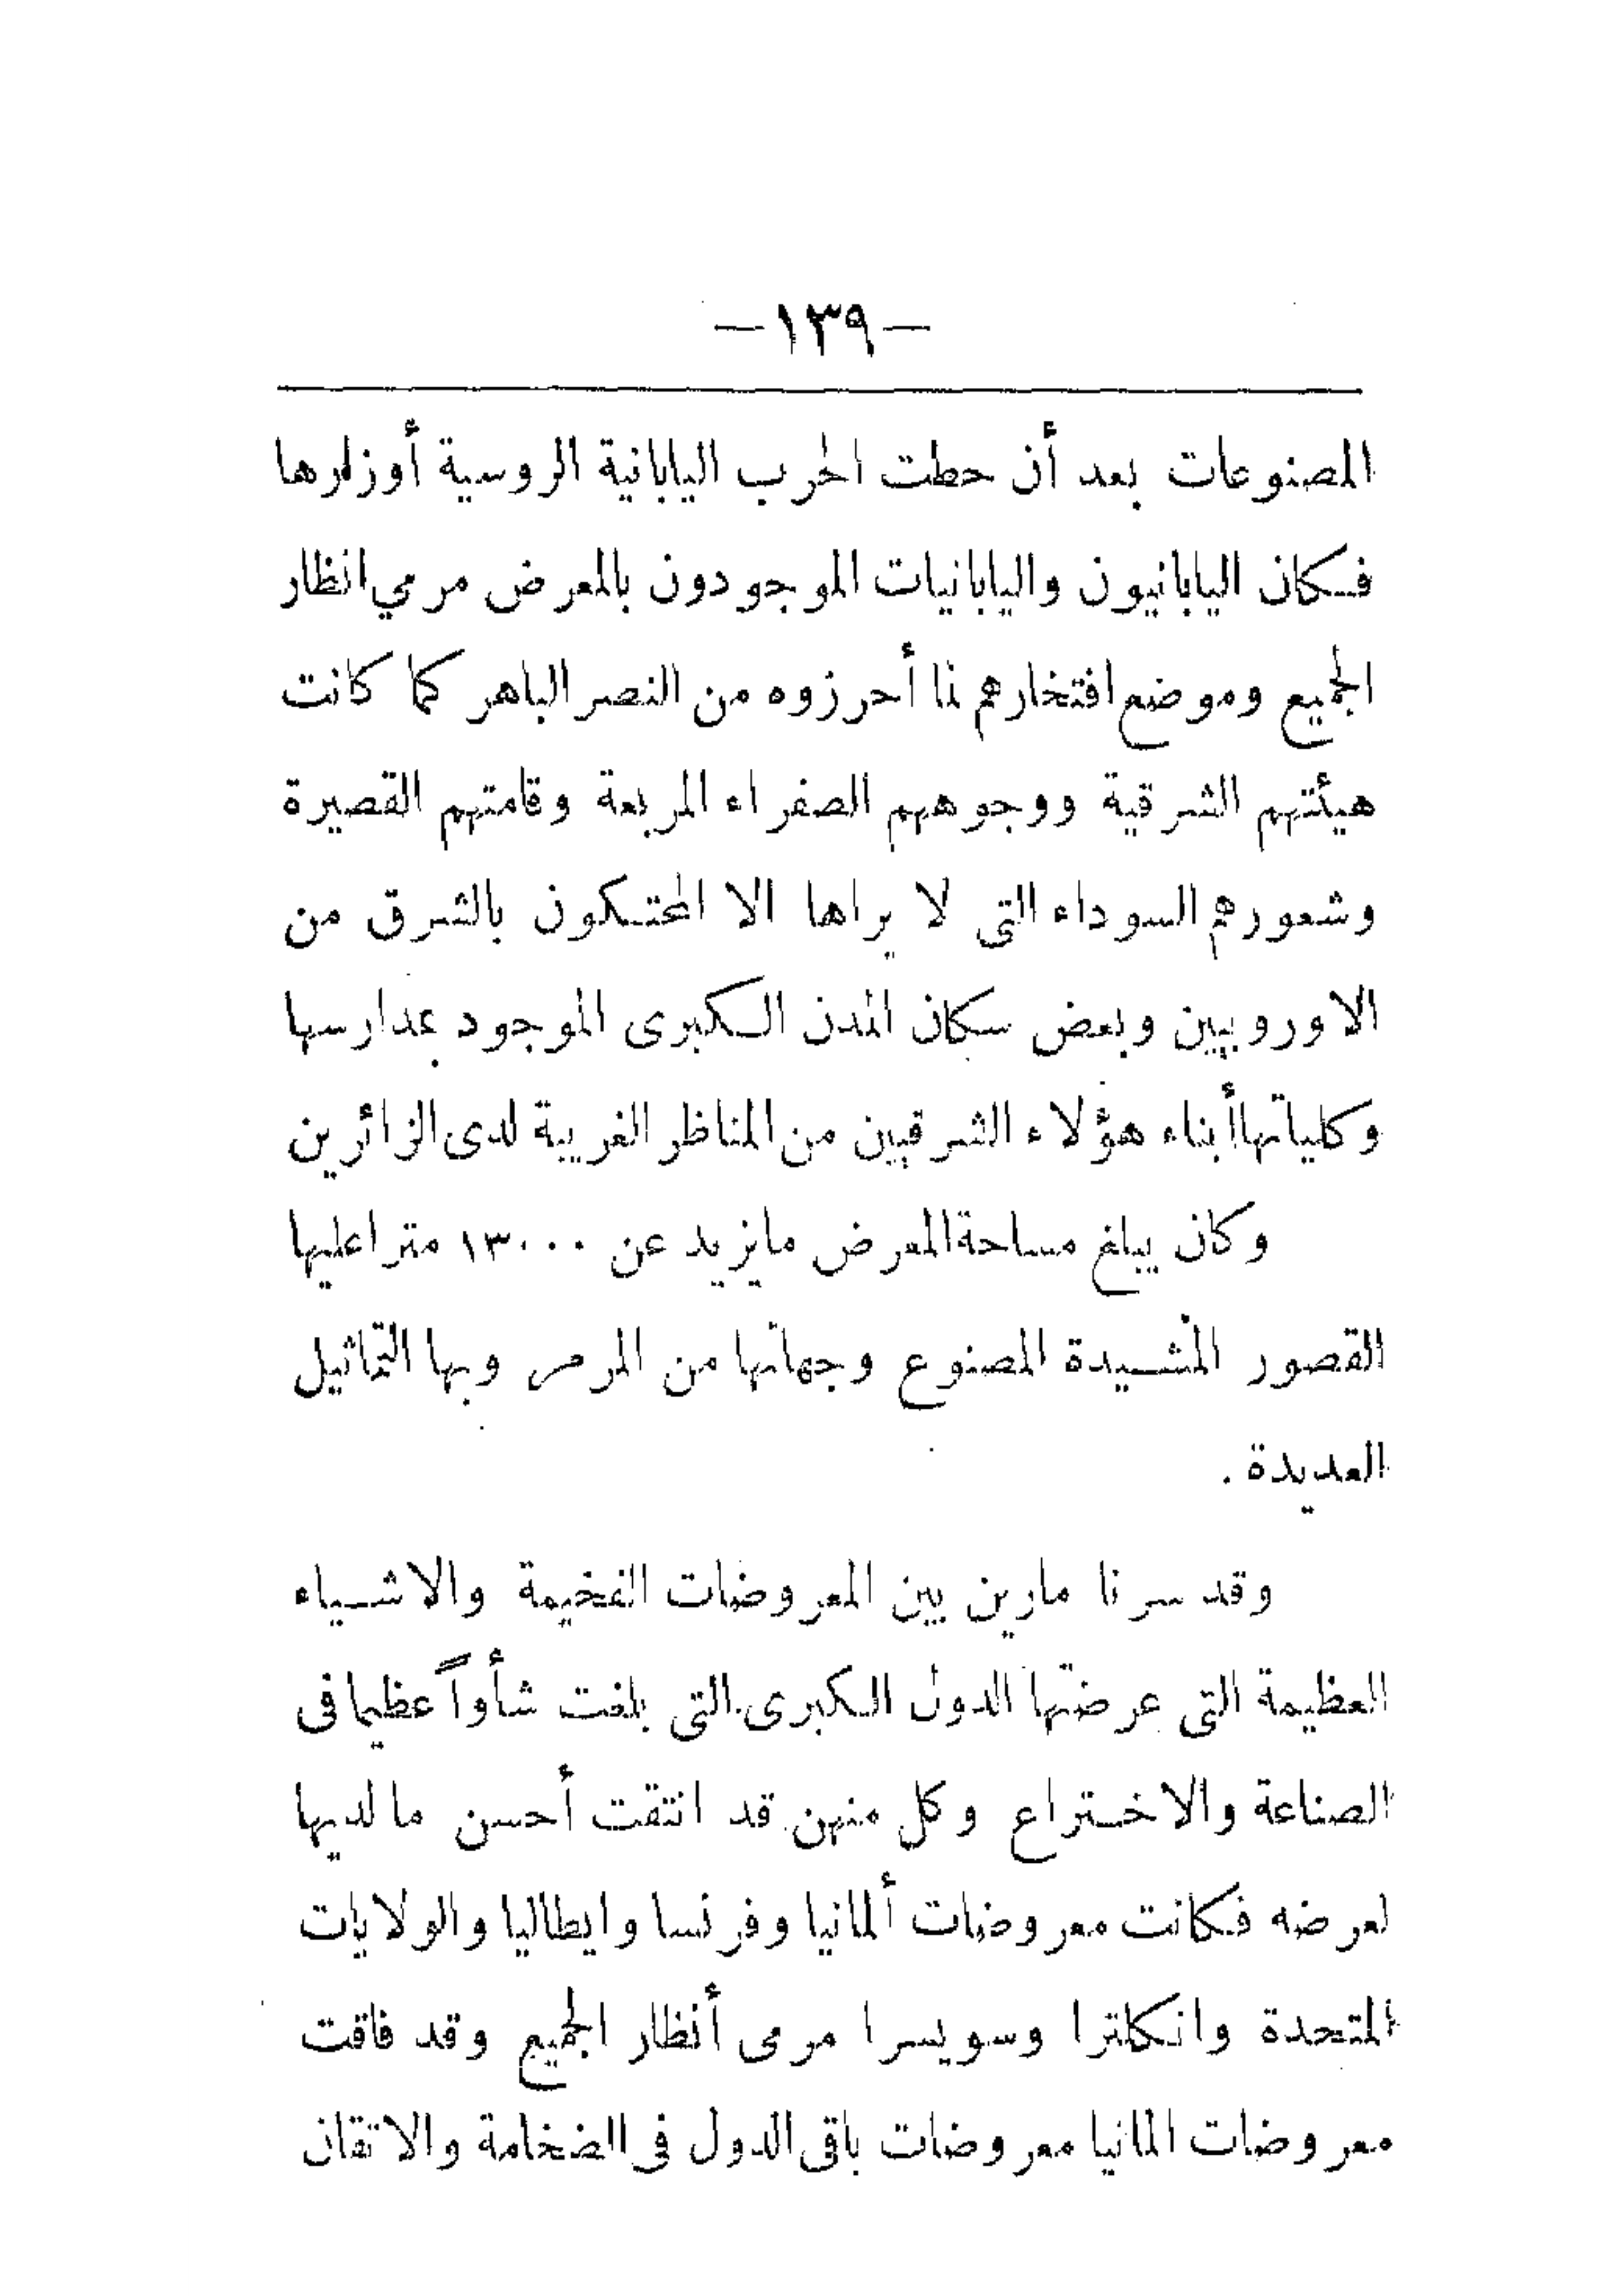 — ١٣٩ —
المصنوعات بعد أن حطت الحرب اليابانية الروسية أوزارها
فكان اليابانيون واليابانيات الموجودون بالمعرض مرمي انظار
الجميع وموضع افتخارهم لما أحرزوه من النصر الباهر كما كانت
هيئتهم الشرقية ووجوههم الصفراء المربعة وقامتهم القصيرة
وشعورهم السوداء التي لا يراها الا المحتكون بالشرق من
الاوروبيين وبعض سكان المدن الكبرى الموجود بمدارسها
وكلياتها أبناء هؤلاء الشرقيين من المناظر الغريبة لدى الزائرين
وكان يبلغ مساحة المعرض ما يزيد عن ١٣٠٠٠ متر اعليها
القصور المشيدة المصنوع وجهاتها من المرمر وبها التماثيل
العديدة .
وقد سرنا مارين بين المعروضات الفخيمة والاشياء
العظيمة التي عرضتها الدول الكبرى التي بلغت شأواً عظيما في
الصناعة والاختراع وكل منهن قد انتقت أحسن ما لديها
لعرضه فكانت معروضات ألمانيا وفرنسا وايطاليا والولايات
المتحدة وانكلترا وسويسرا مرمى أنظار الجميع وقد فاقت
معروضات المانيا معروضات باقي الدول في الضخامة والاتقان